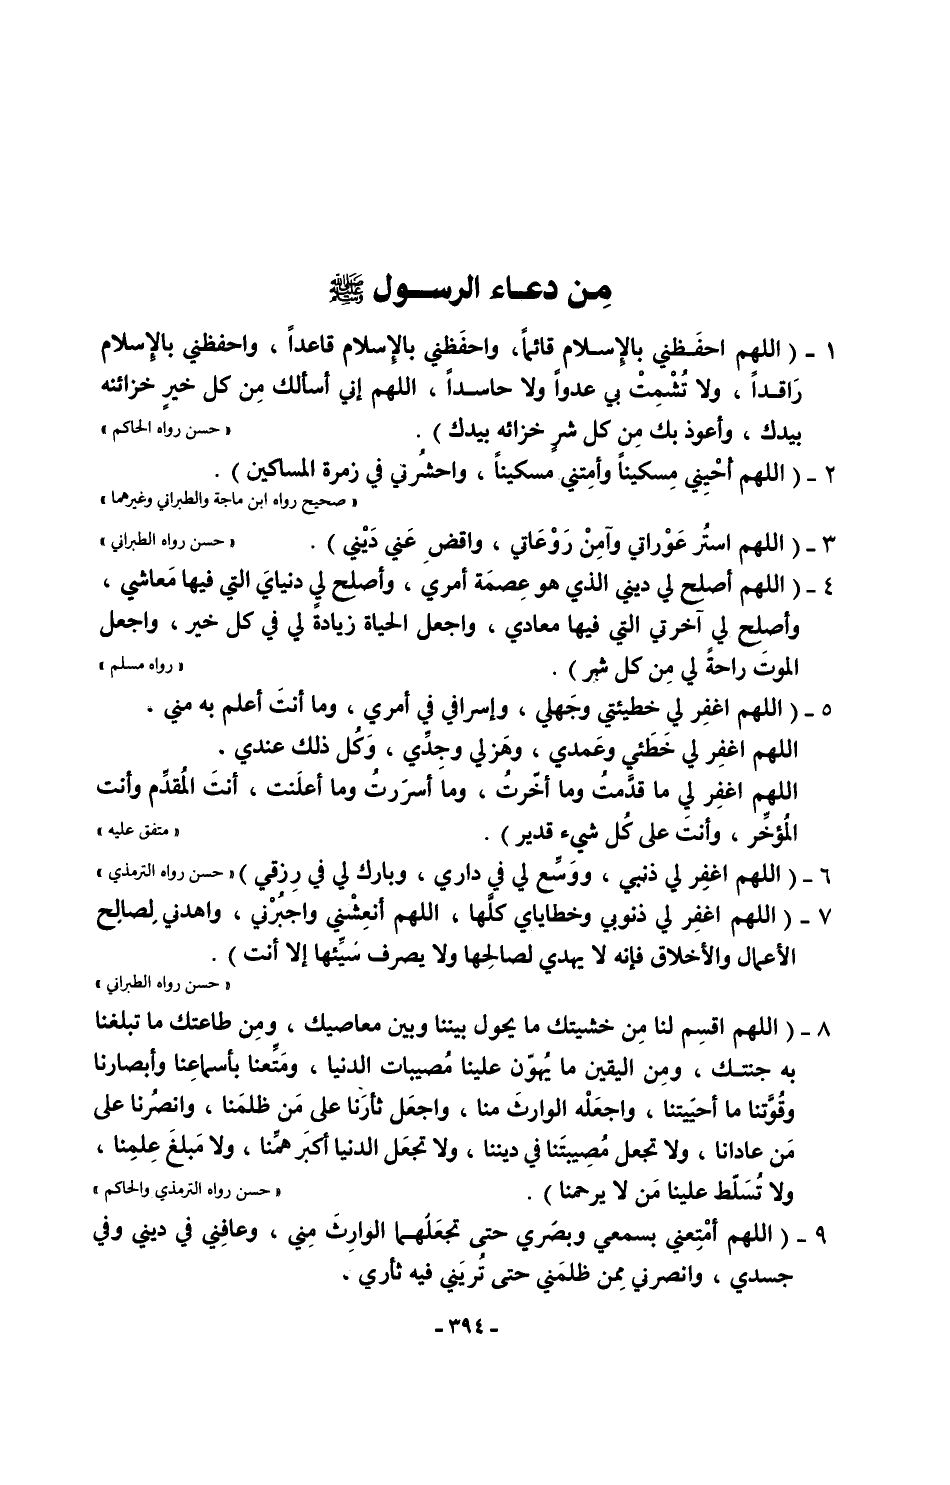 مِن دعـاء الرســول ﷺ
١ - ( اللهم احفَـظني بالإِسـلام قائماً، واحفَظني بالإِسلام قاعداً ، واحفظني بالإِسلام
رَاقـداً ، ولا تُشْمِتْ بي عدواً ولا حاسـداً ، اللهم إني أسألك مِن كل خيرٍ خزائنه
بيدك ، وأعوذ بك مِن كل شرٍ خزائنه بيدك ) . « حسن رواه الحاكم »
٢ - ( اللهم أحْيِني مِسكيناً وأمِتني مسكيناً ، واحشُرني في زمرة المساكين ) .
« صحيح رواه ابن ماجة والطبراني وغيرهما »
٣ - ( اللهم استُر عَوْراتي وآمِنْ رَوْعَاتي ، واقضِ عَني دَيْني ) . « حسن رواه الطبراني »
٤ - ( اللهم أصلح لي ديني الذي هو عِصمَة أمري ، وأصلح لي دنيايَ التي فيها مَعاشي ،
وأصلح لي آخرتي التي فيها معادي ، واجعل الحياة زيادةً لي في كل خير ، واجعل
الموتَ راحةً لي مِن كل شر ) . « رواه مسلم »
٥ - ( اللهم اغفِر لي خطيئتي وجَهلي ، وإسرافي في أمري ، وما أنتَ أعلم به مني .
اللهم اغفِر لي خَطَئي وعَمدي ، وهَزلي وجِدِّي ، وَكُل ذلك عندي .
اللهم اغفِر لي ما قدَّمتُ وما أخّرتُ ، وما أسرَرتُ وما أعلَنت ، أنتَ المُقدِّم وأنت
المُؤخِّر ، وأنتَ على كُل شيء قدير ) . « متفق عليه »
٦ - ( اللهم اغفِر لي ذنبي ، ووَسِّع لي في داري ، وبارك لي في رِزقي ) « حسن رواه الترمذي »
٧ - ( اللهم اغفِر لي ذنوبي وخطاياي كلَّها ، اللهم أنعِشْني واجبُرْني ، واهدني لِصالِح
الأعمال والأخلاق فإنه لا يهدي لصالحِها ولا يصرف سَيِّئها إلا أنت ) .
« حسن رواه الطبراني »
٨ - ( اللهم اقسِم لنا مِن خشيتك ما يحول بيننا وبين معاصيك ، ومِن طاعتك ما تبلغنا
به جنتـك ، ومِن اليقين ما يُهوّن علينا مُصيبات الدنيا ، ومَتِّعنا بأسماعِنا وأبصارنا
وقُوَّتنا ما أحيَيتنا ، واجعَلْه الوارثَ منا ، واجعَل ثأرَنا على مَن ظلمَنا ، وانصُرنا على
مَن عادانا ، ولا تجعل مُصِيبتَنا في ديننا ، ولا تجعَل الدنيا أكبَر همِّنا ، ولا مَبلغَ عِلمِنا ،
ولا تُسَلّط علينا مَن لا يرحمنا ) . « حسن رواه الترمذي والحاكم »
٩ - ( اللهم أمْتِعني بسمعي وبصَري حتى تجعَلُهـما الوارِثَ مِني ، وعافِني في ديني وفي
جسدي ، وانصرني ممن ظلمَني حتى تُريَني فيه ثأري .
- ٣٩٤ -